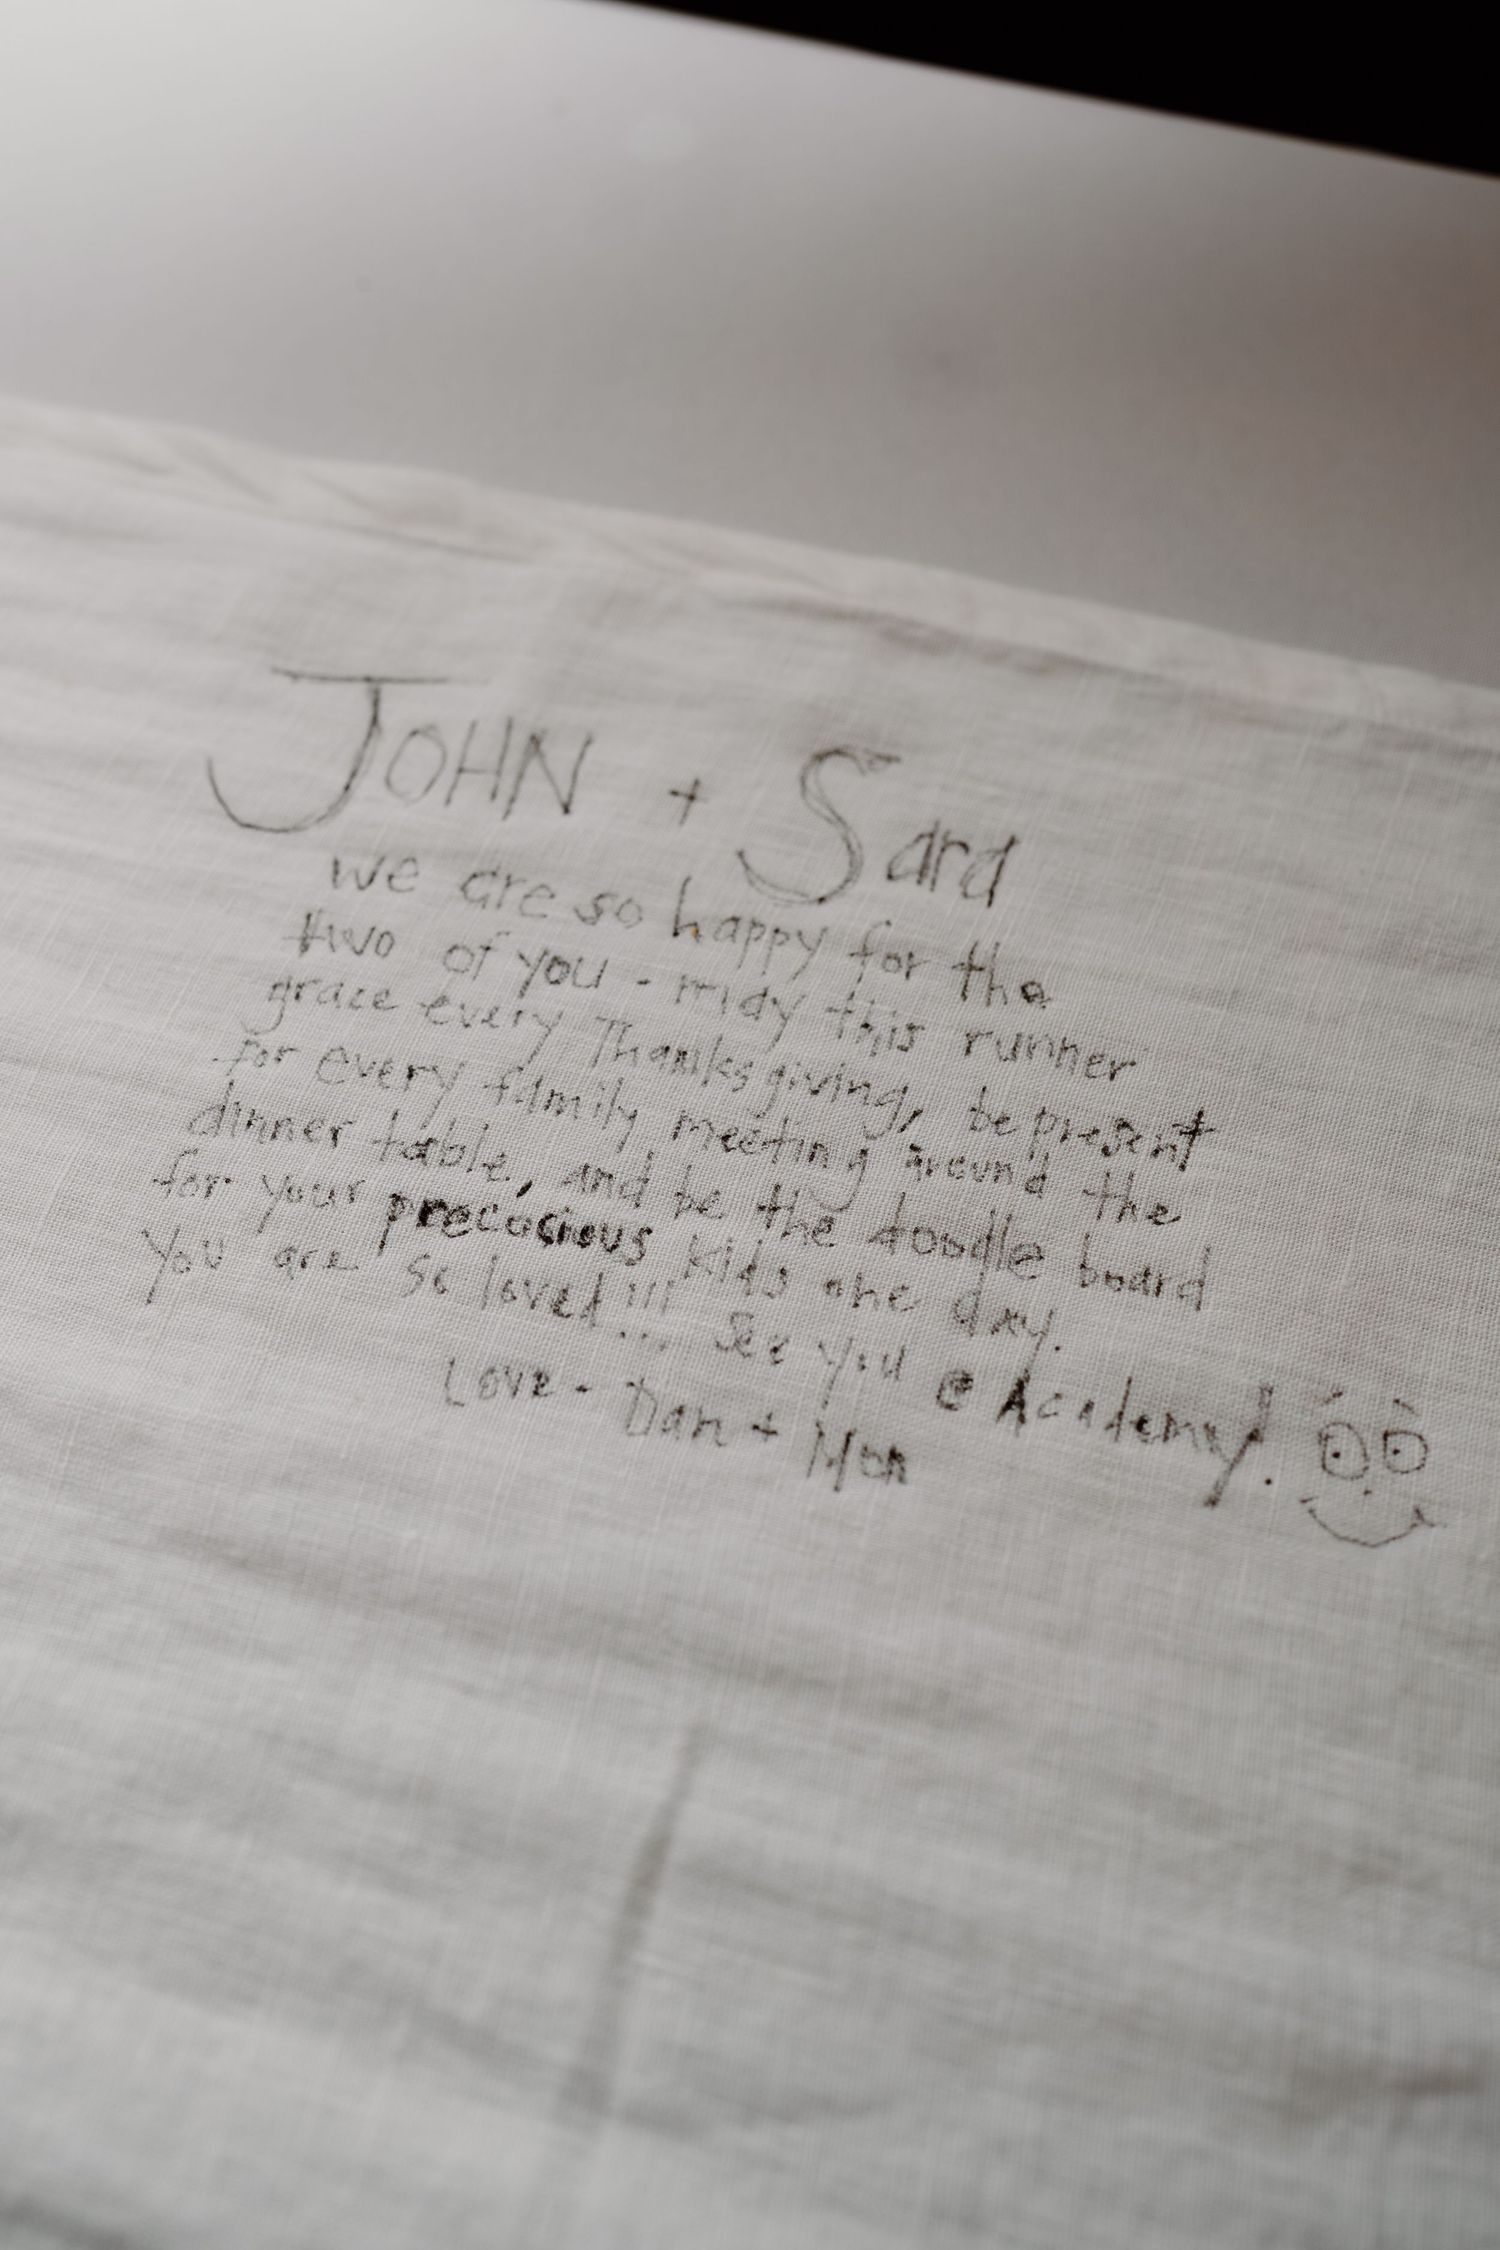 JOHN + Sara
we are so happy for the
two of you - may this runner
grace every Thanksgiving, be present
for every family meeting around the
dinner table, and be the doodle board
for your precocious kids one day.
You are so loved!!! See you @ Academy!.
Love - Dan + Mon